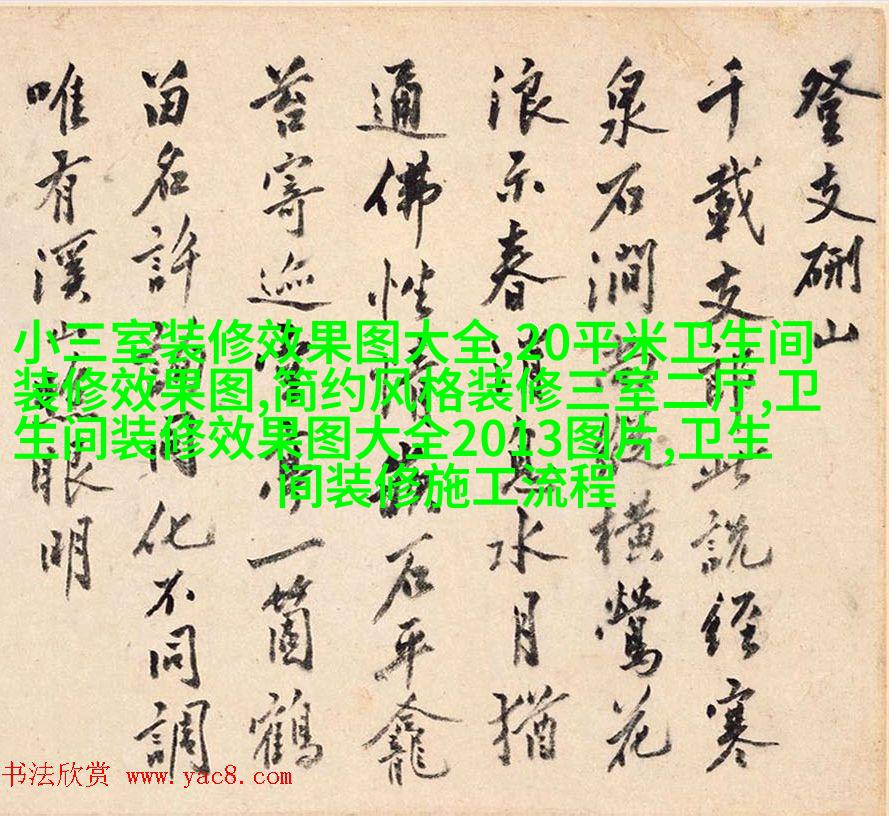 登支硎山
千載支此說經寒
泉石澗縱橫鶯花
浪示春消息水月猶
通佛性石平龕
苔寄巡一箇鶴
留名許同化不同調
唯有溪山眼明
小三室装修效果图大全,20平米卫生间
装修效果图,简约风格装修三室二厅,卫
生间装修效果图大全2013图片,卫生
间装修施工流程
书法欣赏 www.yac8.com